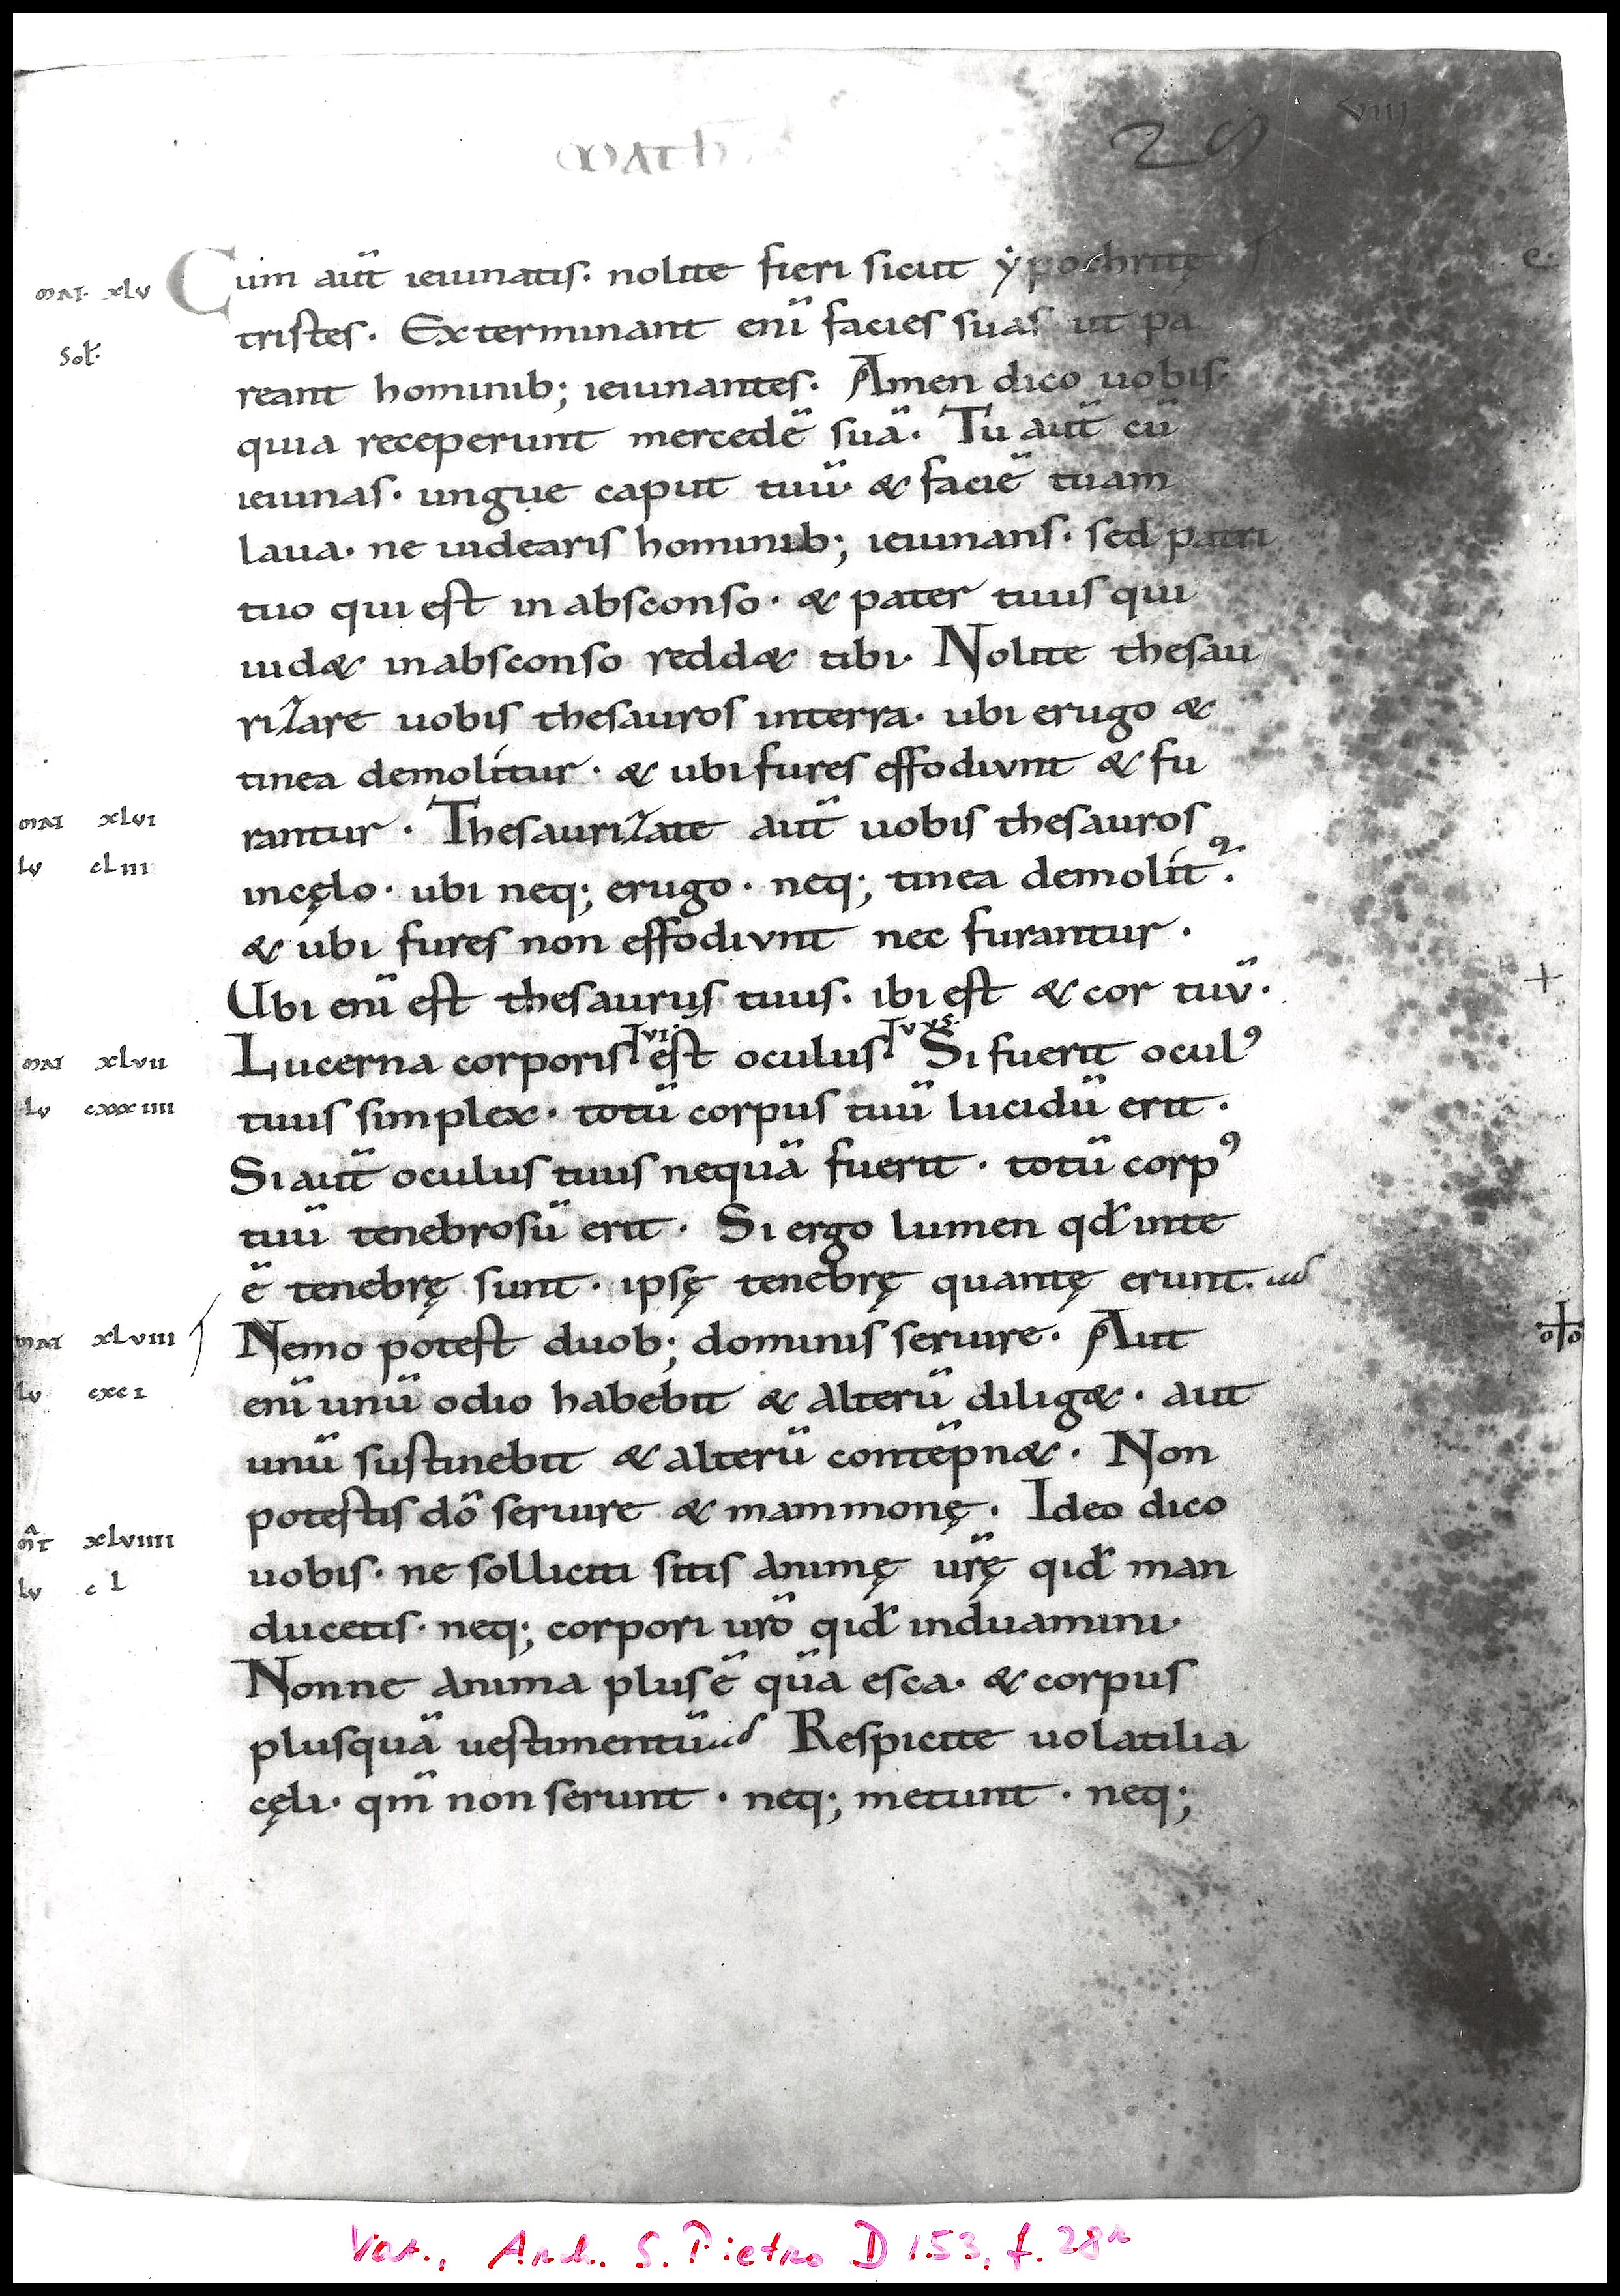 MATH
29 VIII
MAT XLV
Sol
Cum aut̄ ieiunatis· nolite fieri sicut ẏpochritę
tristes· Exterminant enī facies suas ut pa
reant hominib; ieiunantes· Amen dico uobis
quia receperunt mercedē suā· Tu aut̄ cū
ieiunas· ungue caput tuū· & faciē tuam
laua· ne uidearis hominib; ieiunans· sed patri
tuo qui est in absconso· & pater tuus qui
uid& in absconso redd& tibi· Nolite thesau
rizare uobis thesauros interra· ubi erugo &
tinea demolítur· & ubi fures effodiunt & fu
MAT XLVI
rantur· Thesaurizate aut̄ uobis thesauros
LV CLIII
incęlo· ubi neq; erugo· neq; tinea demolít᷑·
& ubi fures non effodiunt nec furantur·
Ubi enī est thesaurus tuus· ibi est & cor tuū·
MAT XLVII
Lucerna corporis· TVI· est oculus· TVVS· Si fuerit oculꝰ
LV CXXXIIII
tuus simplex· totū corpus tuū lucidū erit·
Si aut̄ oculus tuus nequā fuerit· totū corpꝰ
tuū tenebrosū erit· Si ergo lumen qd̄ inte
ē tenebrę sunt· ipsę tenebrę quantę erunt·
MAT XLVIII
Nemo potest duob; dominis seruire· Aut
LV CXCI
enī unū odio habebit & alterū dilig&· aut
unū sustinebit & alterū contēpn&· Non
potestis dō seruire & mammonę· Ideo dico
MT XLVIIII
uobis· ne solliciti sitis animę ur̄ę qid̄ man
LV CL
ducetis· neq; corpori ur̄o qid̄ induamini·
Nonne anima plus ē quā esca· & corpus
plusquā uestimentū Respicite uolatilia
cęli· qm̄ non serunt· neq; metunt· neq;
Vat., Arch. S. Pietro D 153, f. 28r